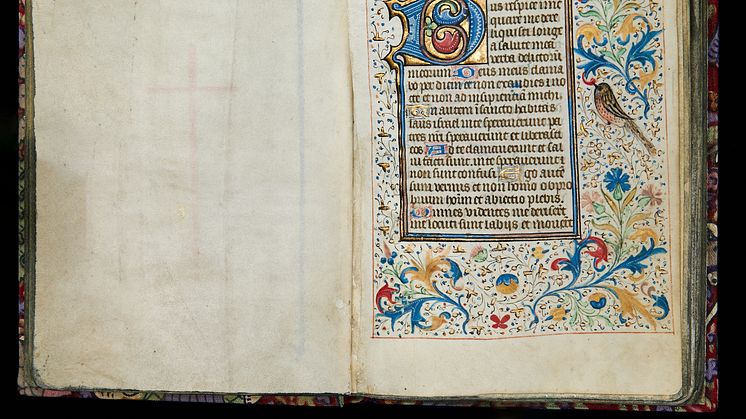 D us respice in me
quare me dere
liquisti longe
a salute mea
verba delictoru
meorum Deus meus clama
bo per diem et non exaudies in no
cte et non ad insipientiam michi
Tu autem in sancto habitas
laus israel in te sperauerunt pa
tres nrī sperauerunt et liberasti
eos Ad te clamauerunt et sal
ui facti sunt in te sperauerunt
non sunt confusi Ego autē
sum vermis et non homo obpro
brium hoīm et abiectio plebis
Omnes videntes me deriserūt
me locuti sunt labijs et mouerūt